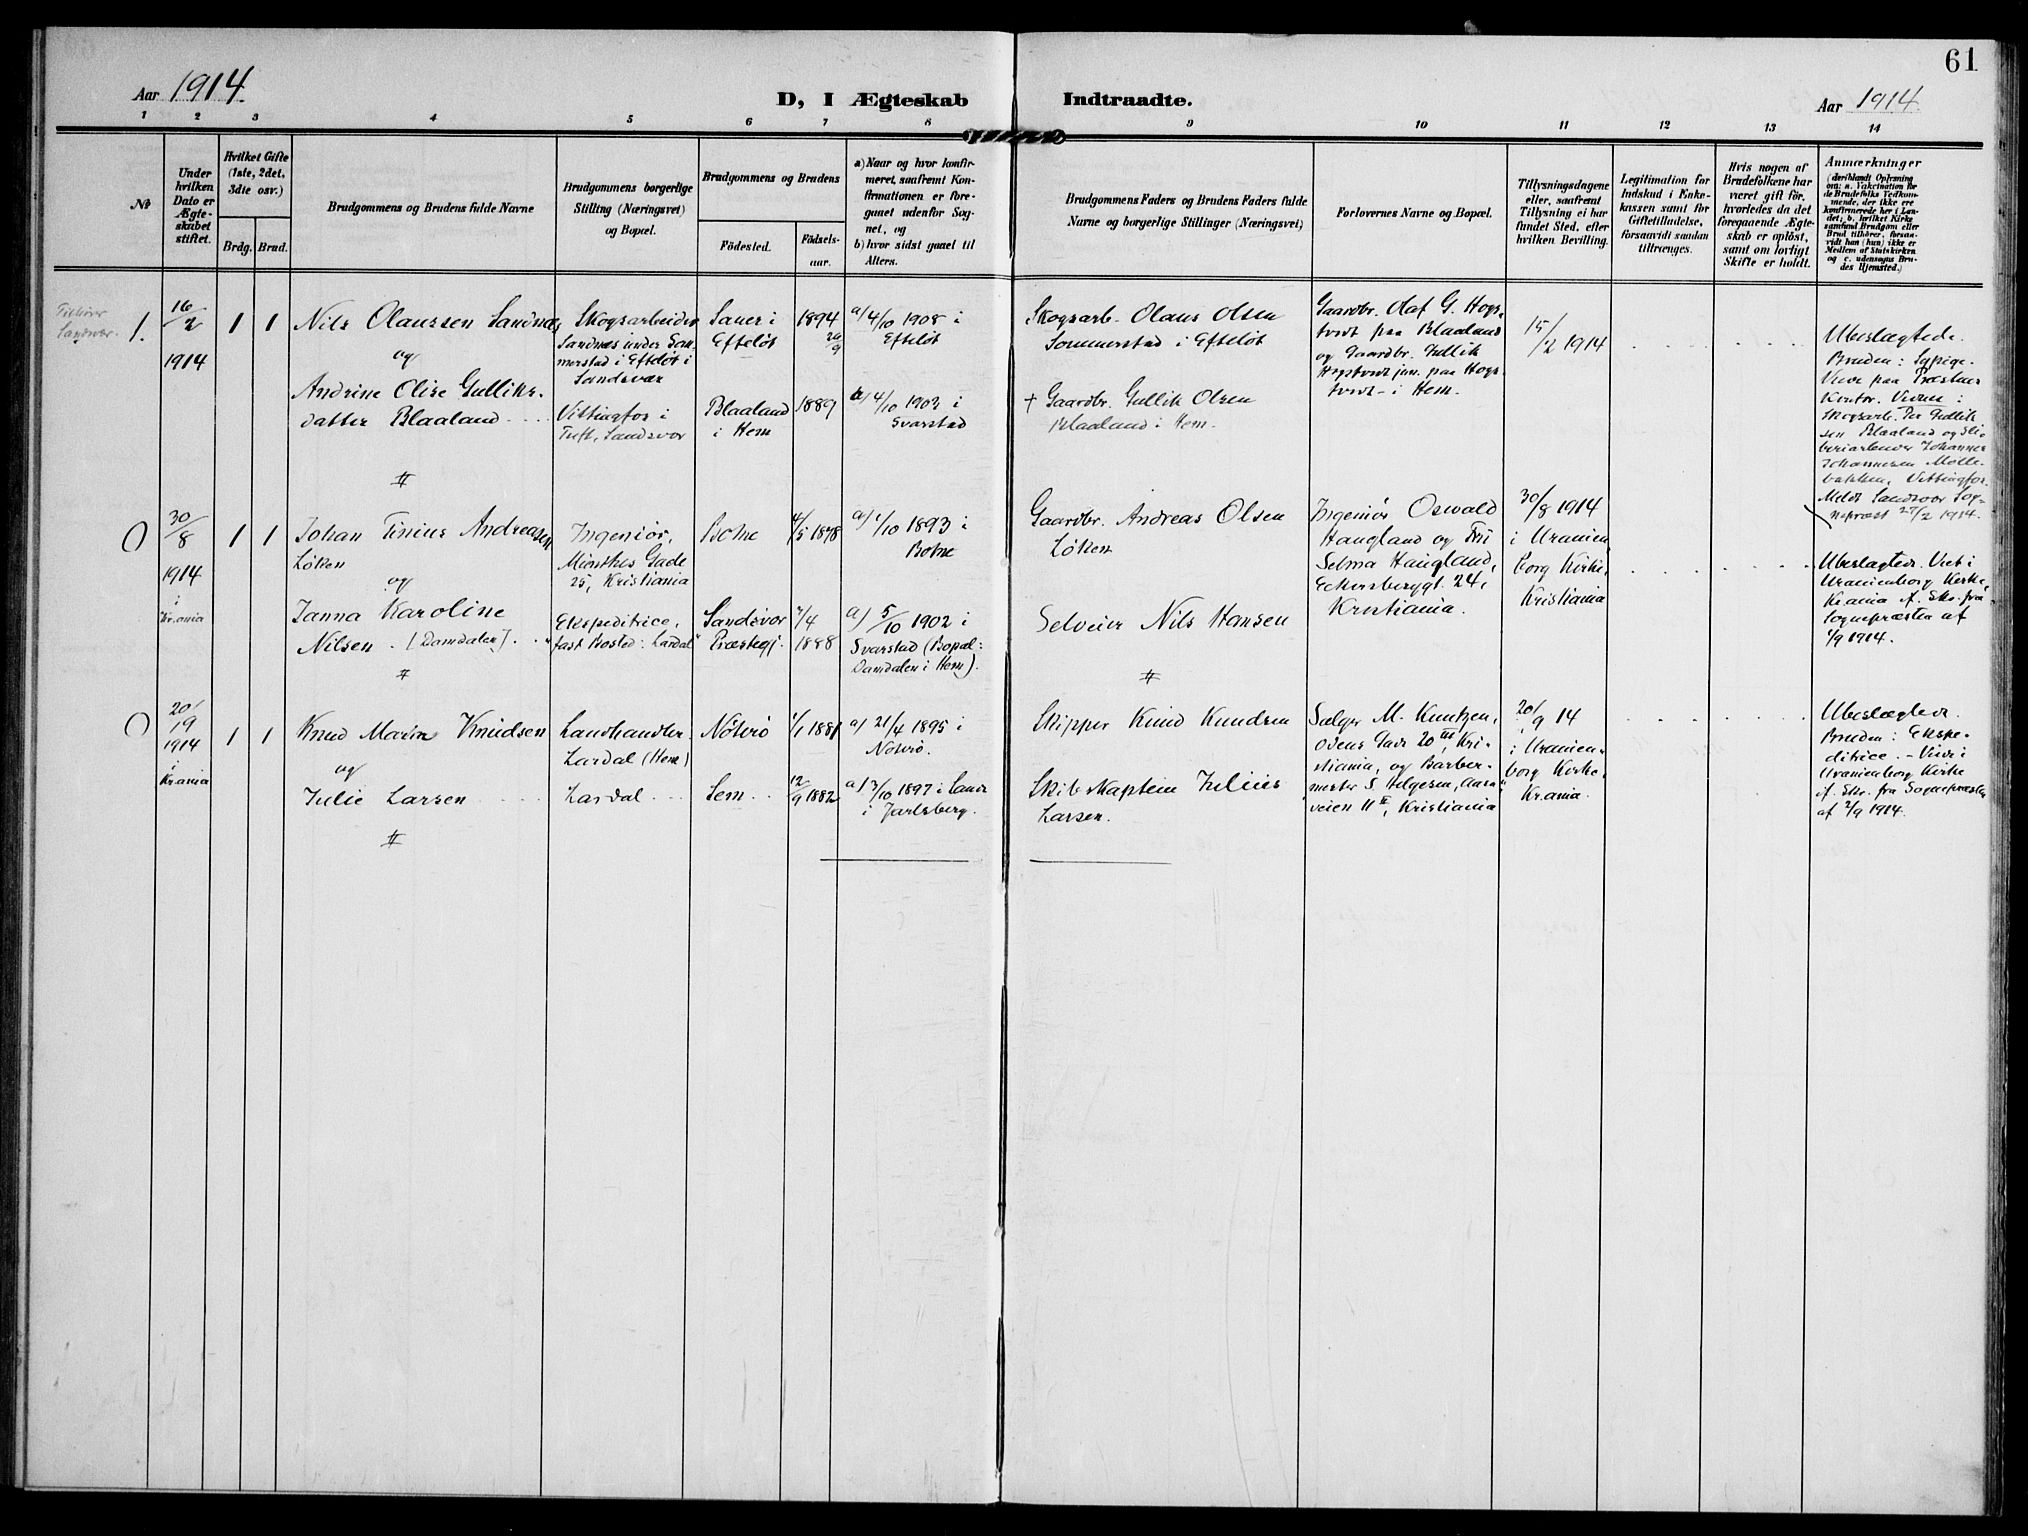 61
Aar 1914.
D, I Ægteskab Indtraadte.
Aar 1914.
1 2 3 4 5 6 7 8 9 10 11 12 13 14
No
Under
hvilken
Dato er
Ægte-
skabet
stiftet.
Hvilket Gifte
(1ste, 2det,
3die osv.)
Brdg. Brud.
Brudgommens og Brudens fulde Navne
Brudgommens borgerlige
Stilling (Næringsvei)
og Bopæl.
Brudgommens og Brudens
Födested.
Födsels-
aar.
a) Naar og hvor konfir-
meret, saafremt Kon-
firmationen er fore-
gaaet udenfor Sog-
net, og
b) hvor sidst gaaet til
Alters.
Brudgommens Faders og Brudens Faders fulde
Navne og borgerlige Stillinger (Næringsvei)
Forlovernes Navne og Bopæl.
Tillysningsdagene
eller, saafremt
Tillysning ei har
fundet Sted, efter
hvilken Bevilling.
Legitimation for
Indskud i Enke-
kassen samt for
Giftetilladelse,
forsaavidt saadan
tiltrænges.
Hvis nogen af
Brudefolkene har
været gift för,
hvorledes da det
foregaaende Ægte-
skab er oplöst,
samt om lovligt
Skifte er holdt.
Anmærkninger
(deriblandt Oplysning
om: a. Vakcination for
de Brudefolks Vedkom-
mende, der ikke ere
konfirmerede her i Lan-
det; b. hvilket Kirke
samfund Brudgom eller
Brud tilhörer, forsaa-
vidt han (hun) ikke er
Medlem af Statskirken
og c. udensogns Bru-
des Hjemsted.)
Tilhører
Sandsvær.
1.
16/2
1914
1 1
Nils Olaussen Sandnæs
og
Andrine Olise Gulliks-
datter Blaaland
Skogsarbeider
Sandnæs under Som-
merstad i Efteløt i
Sandsvær
Vittingfos i
Tuft, Sandsvær
Sauer i
Efteløt
Blaaland
i Hem
1894
20/9
1889
a/ 4/10 1908 i
Efteløt
a/ 4/10 1903 i
Svarstad
Skogsarb. Olaus Olsen
Sommerstad i Efteløt
† Gaardbr. Gullik Olsen
Blaaland i Hem.
Gaardbr. Olaf G. Hogs-
tvedt paa Blaaland
og Gaardbr. Gullik
Hogstvedt jun. paa Hogs-
tvedt i Hem.
15/2 1914
Ubeslægtede.
Bruden: Sypige.
Viede paa Præstens
Kontor. Vidner:
Skogsarb. Per Gullik-
sen Blaaland og Sli-
beriarbeider Johannes
Johannesen Mølle-
bakken, Vittingfos.
Meldt Sandsvær Sog-
nepræst 27/2 1914.
#
0
30/8
1914
i
Kr.ania
1 1
Johan Tinius Andreassen
Løken
og
Janna Karoline
Nilsen. (Damdalen).
Ingeniør,
Munthes Gade
25, Kristiania
Ekspeditrice,
fast Bosted: Lardal
Botne
Sandsvær
Præstegj.
4/5 1878
7/4
1888
a/ 1/10 1893 i
Botne
a) 5/10 1902 i
Svarstad (Bopæl:
Damdalen i Hem).
Gaardbr. Andreas Olsen
Løken
Selveier Nils Hansen
#
Ingeniør Oswald
Haugland og Fru
Selma Haugland,
Eckersbergsgt. 24,
Kristiania.
30/8 1914
i Uranien
borg Kirke,
Kristiania
Ubeslægtede. Viet i
Uranienborg Kirke,
Kr.ania if. Skr. fra
Sognepræsten af
1/9 1914.
#
0
20/
19
1914
i
Kr.ania
1 1
Knud Marin Knudsen
og
Julie Larsen
Landhandler
Lardal (Hem)
Lardal
Nøterø
Sem
1/1 1881
12/9 1882
a) 21/4 1895 i
Nøterø.
a) 3/10 1897 i Sande
i Jarlsberg.
Skipper Knud Knudsen
Skibskaptein Julius
Larsen.
Sælger M. Knutzen,
Odens Gade 20 III, Kri-
stiania, og Barber-
mester S. Helgesen, Aasa-
veien 11 II, Kristiania
20/9 14
i Uranien-
borg Kirke,
Kr.ania.
Ubeslægtede.
Bruden: Ekspe-
ditrice. – Viede i
Uranienborg Kirke
if. Skr. fra Sognepræsten
af 2/9 1914.
#